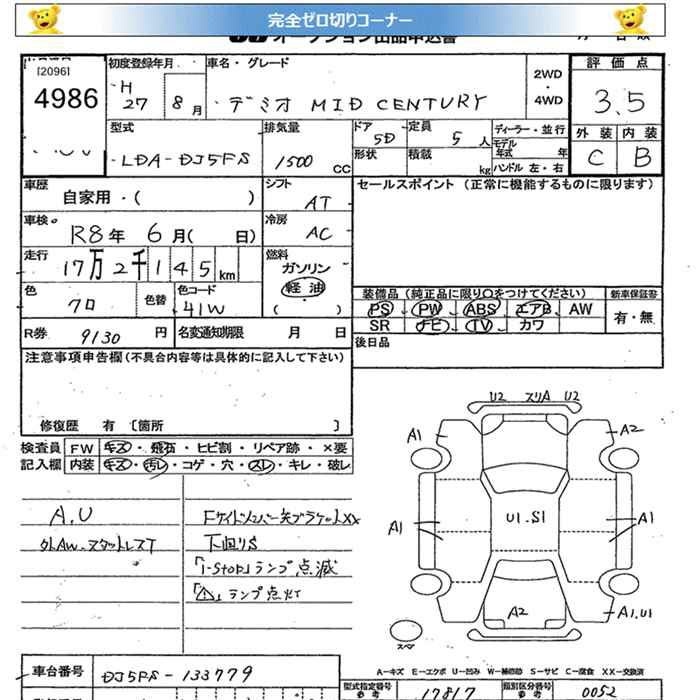 完全ゼロ切りコーナー
オークション出品申込書
[2096]
4986
初度登録年月
H
27 8 月
車名・グレード
デミオ MID CENTURY
2WD
・
4WD
評価点
3.5
外装 内装
C B
型式
LDA-DJ5FS
排気量
1500 cc
ドア
5D
定員
5 人
形状
積載
kg
ディーラー・並行
モデル
年式 年
ハンドル 左・右
車歴
自家用・( )
シフト
AT
セールスポイント (正常に機能するものに限ります)
車検
R8年 6月( 日)
冷房
AC
走行
17万2千145km
燃料
ガソリン
軽油
( )
色
クロ
色替
色コード
41W
装備品 (純正品に限り○をつけてください)
PS PW ABS エアB AW
SR ナビ TV カワ
新車保証書
有・無
R券 9130 円
名変通知期限 月 日
後日品
注意事項申告欄(不具合内容等は具体的に記入して下さい)
修復歴 有 [箇所 ]
検査員
記入欄
FW キズ・飛石・ヒビ割・リペア跡・×要
内装 キズ・汚レ・コゲ・穴・スレ・キレ・破レ
A,U
外AW.スタットレスT
Fサイドメンバー先ブラケットXX
下回りS
「i-STOP」ランプ点滅
「⚠」ランプ点灯
U2 スリA U2
A1
A2
A1
U1.S1
A1
A2
A1,U1
スペア
A-キズ E-エクボ U-凹み W-補修跡 S-サビ C-腐食 XX-交換済
車台番号
DJ5FS-133779
型式指定番号
参考
17817
類別区分番号
参考
0052